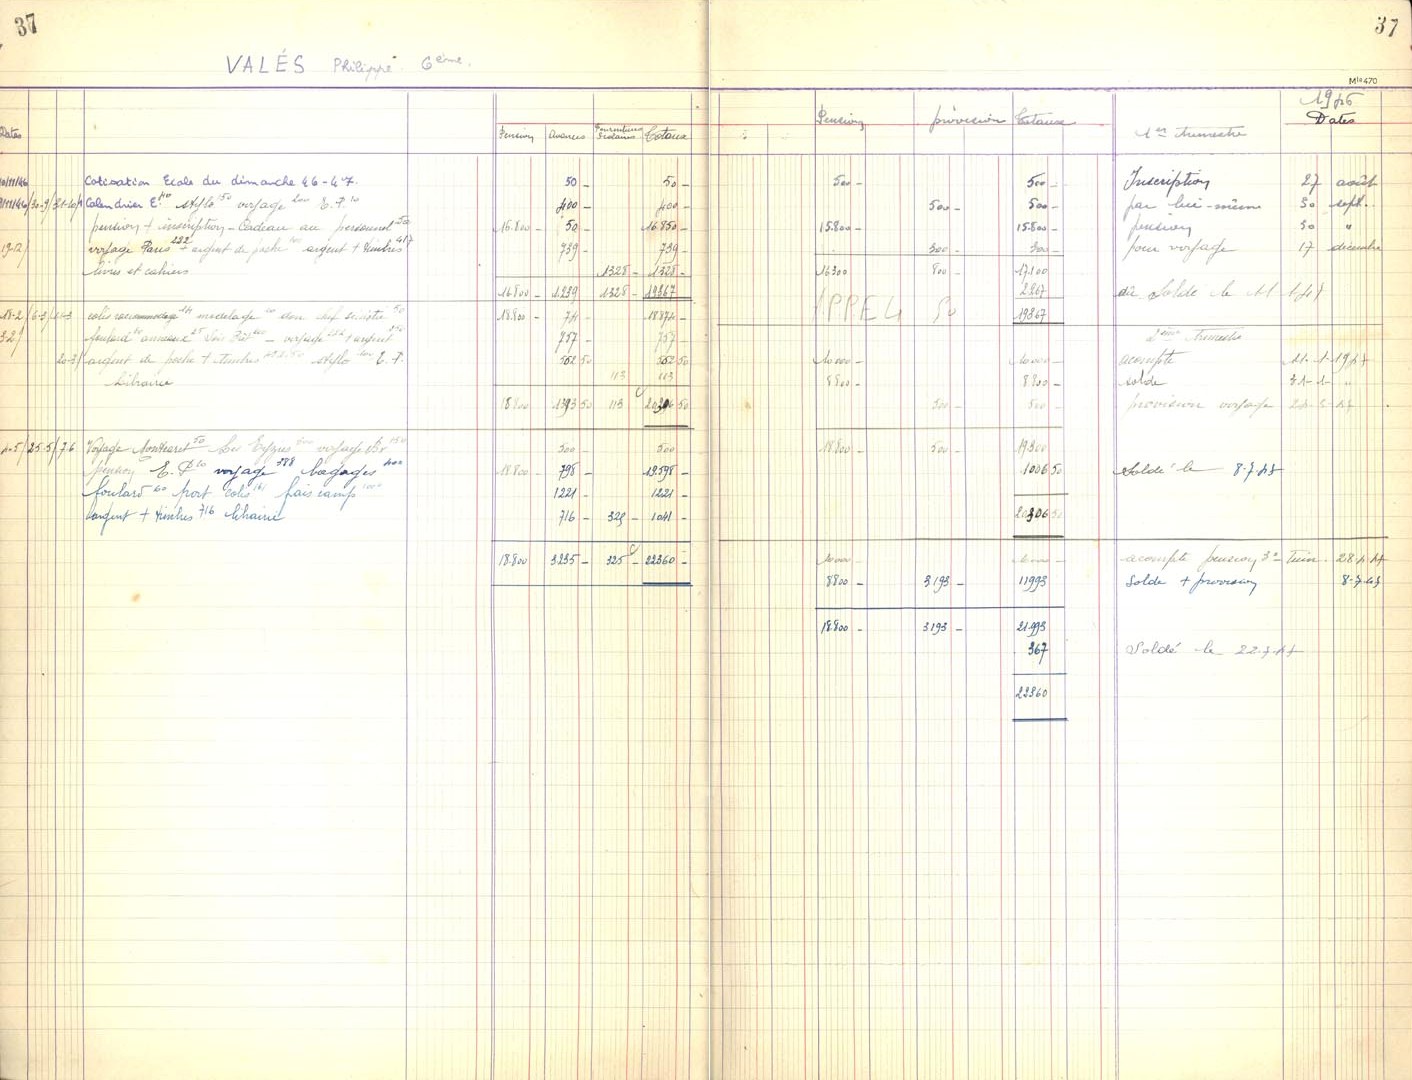 37
VALÉS Philippe. 6ème.
Dates
Pension Avances Fournitures Scolaires Totaux
10/11/46 Cotisation Ecole du dimanche 46-47. 50 - 50 -
Calendrier E. 40 stylo 150 voyage 200 E.P. 10 400 - 400 -
pension + inscription - Cadeau au personnel 50 16.800 - 50 - 16.850 -
19-12/ voyage Paris 232 + argent de poche argent + timbres 417 739 - 739 -
livres et cahiers 1328 - 1328 -
16.800 - 1.239 1328 - 19367 -
18-2/6-3/ colis raccommodage 24 50 18.800 - 74 - 18874 -
foulard 25 voyage 232 + argent 250 757 - 757 -
20-3/ argent de poche + timbres stylo E.P. 562 50 562 50
Librairie 113 113
18.800 - 1393 50 113 20306 50
4-5/25-5/7-6 Voyage Montcaret 50 Les Eyzies voyage 150 500 - 500 -
pension E.P. 10 voyage 388 bagages 400 18.800 - 798 - 19.598 -
foulard 60 port colis 161 frais camp 1000 1221 - 1221 -
argent + timbres 716 librairie 716 - 325 - 1041 -
18.800 3235 - 325 - 22360 -
37
Mle 470
Pension provision Totaux 1er trimestre 1946 Dates
500 - 500 - Inscription 27 août
500 - 500 - par lui-même 30 sept.
15.800 - 15.800 - pension 30 "
300 - 300 - pour voyage 17 décembre
16300 800 - 17.100
2267 Soldé le 11 1 47
APPEL 50 19367
2ème Trimestre
10.000 - 10.000 - acompte 11-1-1947
8800 - 8800 - solde 31-1- "
500 - 500 - provision voyage
18.800 - 500 - 19300
1006 50 Soldé le 8-7-47
20306 50
10.000 - 10.000 - acompte pension 3e Trim. 28-4-47
8800 - 3193 - 11993 Solde + provision 8-7-47
18.800 - 3193 - 21.993
367 Soldé le 22-7-47
22360